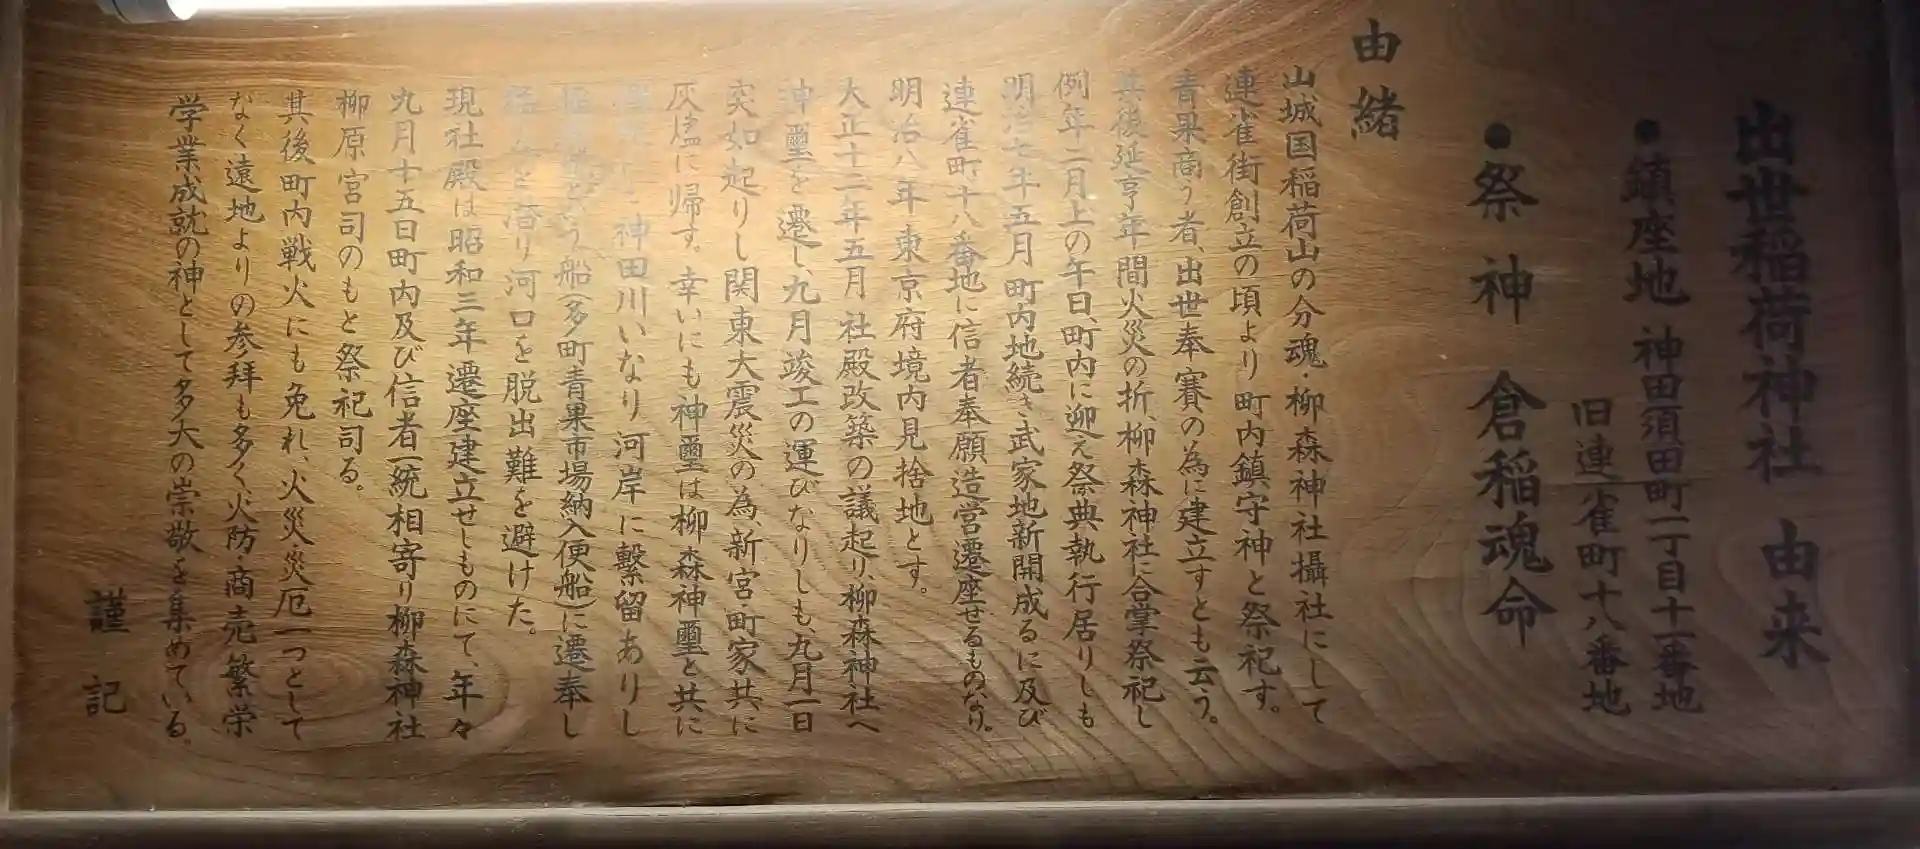 出世稲荷神社 由来
●鎮座地 神田須田町一丁目十一番地
旧連雀町十八番地
●祭神 倉稲魂命
由緒
山城国稲荷山の分魂・柳森神社攝社にして
連雀街創立の頃より町内鎮守神と祭祀す。
青果商う者、出世奉賽の為に建立すとも云う。
其後延亨年間火災の折、柳森神社に合掌祭祀し
例年二月上の午日、町内に迎え祭典執行居りしも
明治七年五月町内地続き武家地新開成るに及び
連雀町十八番地に信者奉願造営遷座せるものなり。
明治八年東京府境内見捨地とす。
大正十二年五月社殿改築の議起り、柳森神社へ
神璽を遷し、九月竣工の運びなりしも、九月一日
突如起りし関東大震災の為、新宮・町家共に
灰燼に帰す。幸いにも神璽は柳森神璽と共に
神田川いなり河岸に繋留ありし
船(多町青果市場納入便船)に遷奉し
と潜り河口を脱出難を避けた。
現社殿は昭和三年遷座建立せしものにて、年々
九月十五日町内及び信者一統相寄り柳森神社
柳原宮司のもと祭祀司る。
其後町内戦火にも免れ、火災災厄一つとして
なく遠地よりの参拜も多く火防商売繁栄
学業成就の神として多大の崇敬を集めている。
謹記